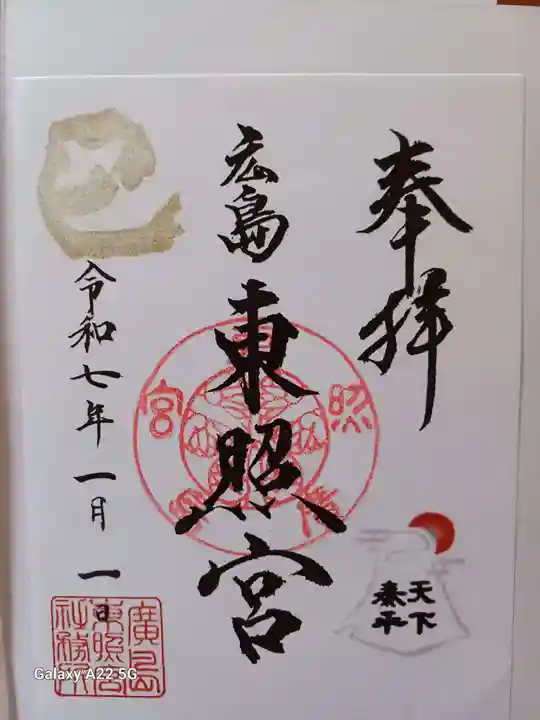 奉拝
天下
泰平
広島
東照宮
照
宮
巳
令和七年一月一日
廣島
東照宮
社務所
Galaxy A22 5G